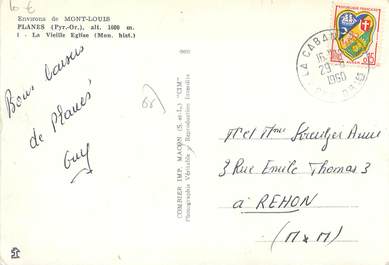 6 €
Environs de MONT-LOUIS
PLANES (Pyr.-Or.), alt. 1600 m.
1 - La Vieille Eglise (Mon. hist.)
Bons baisers
de Planès
Guy
66
COMBIER IMP. MACON (S.-et-L.) "CIM"
Photographie Véritable - Reproduction Interdite
LA CABAN
16
29-8
1960
0,15
Mr et Mme Kreutzer Anne
3 Rue Emile Thomas 3
à REHON
(M&M)